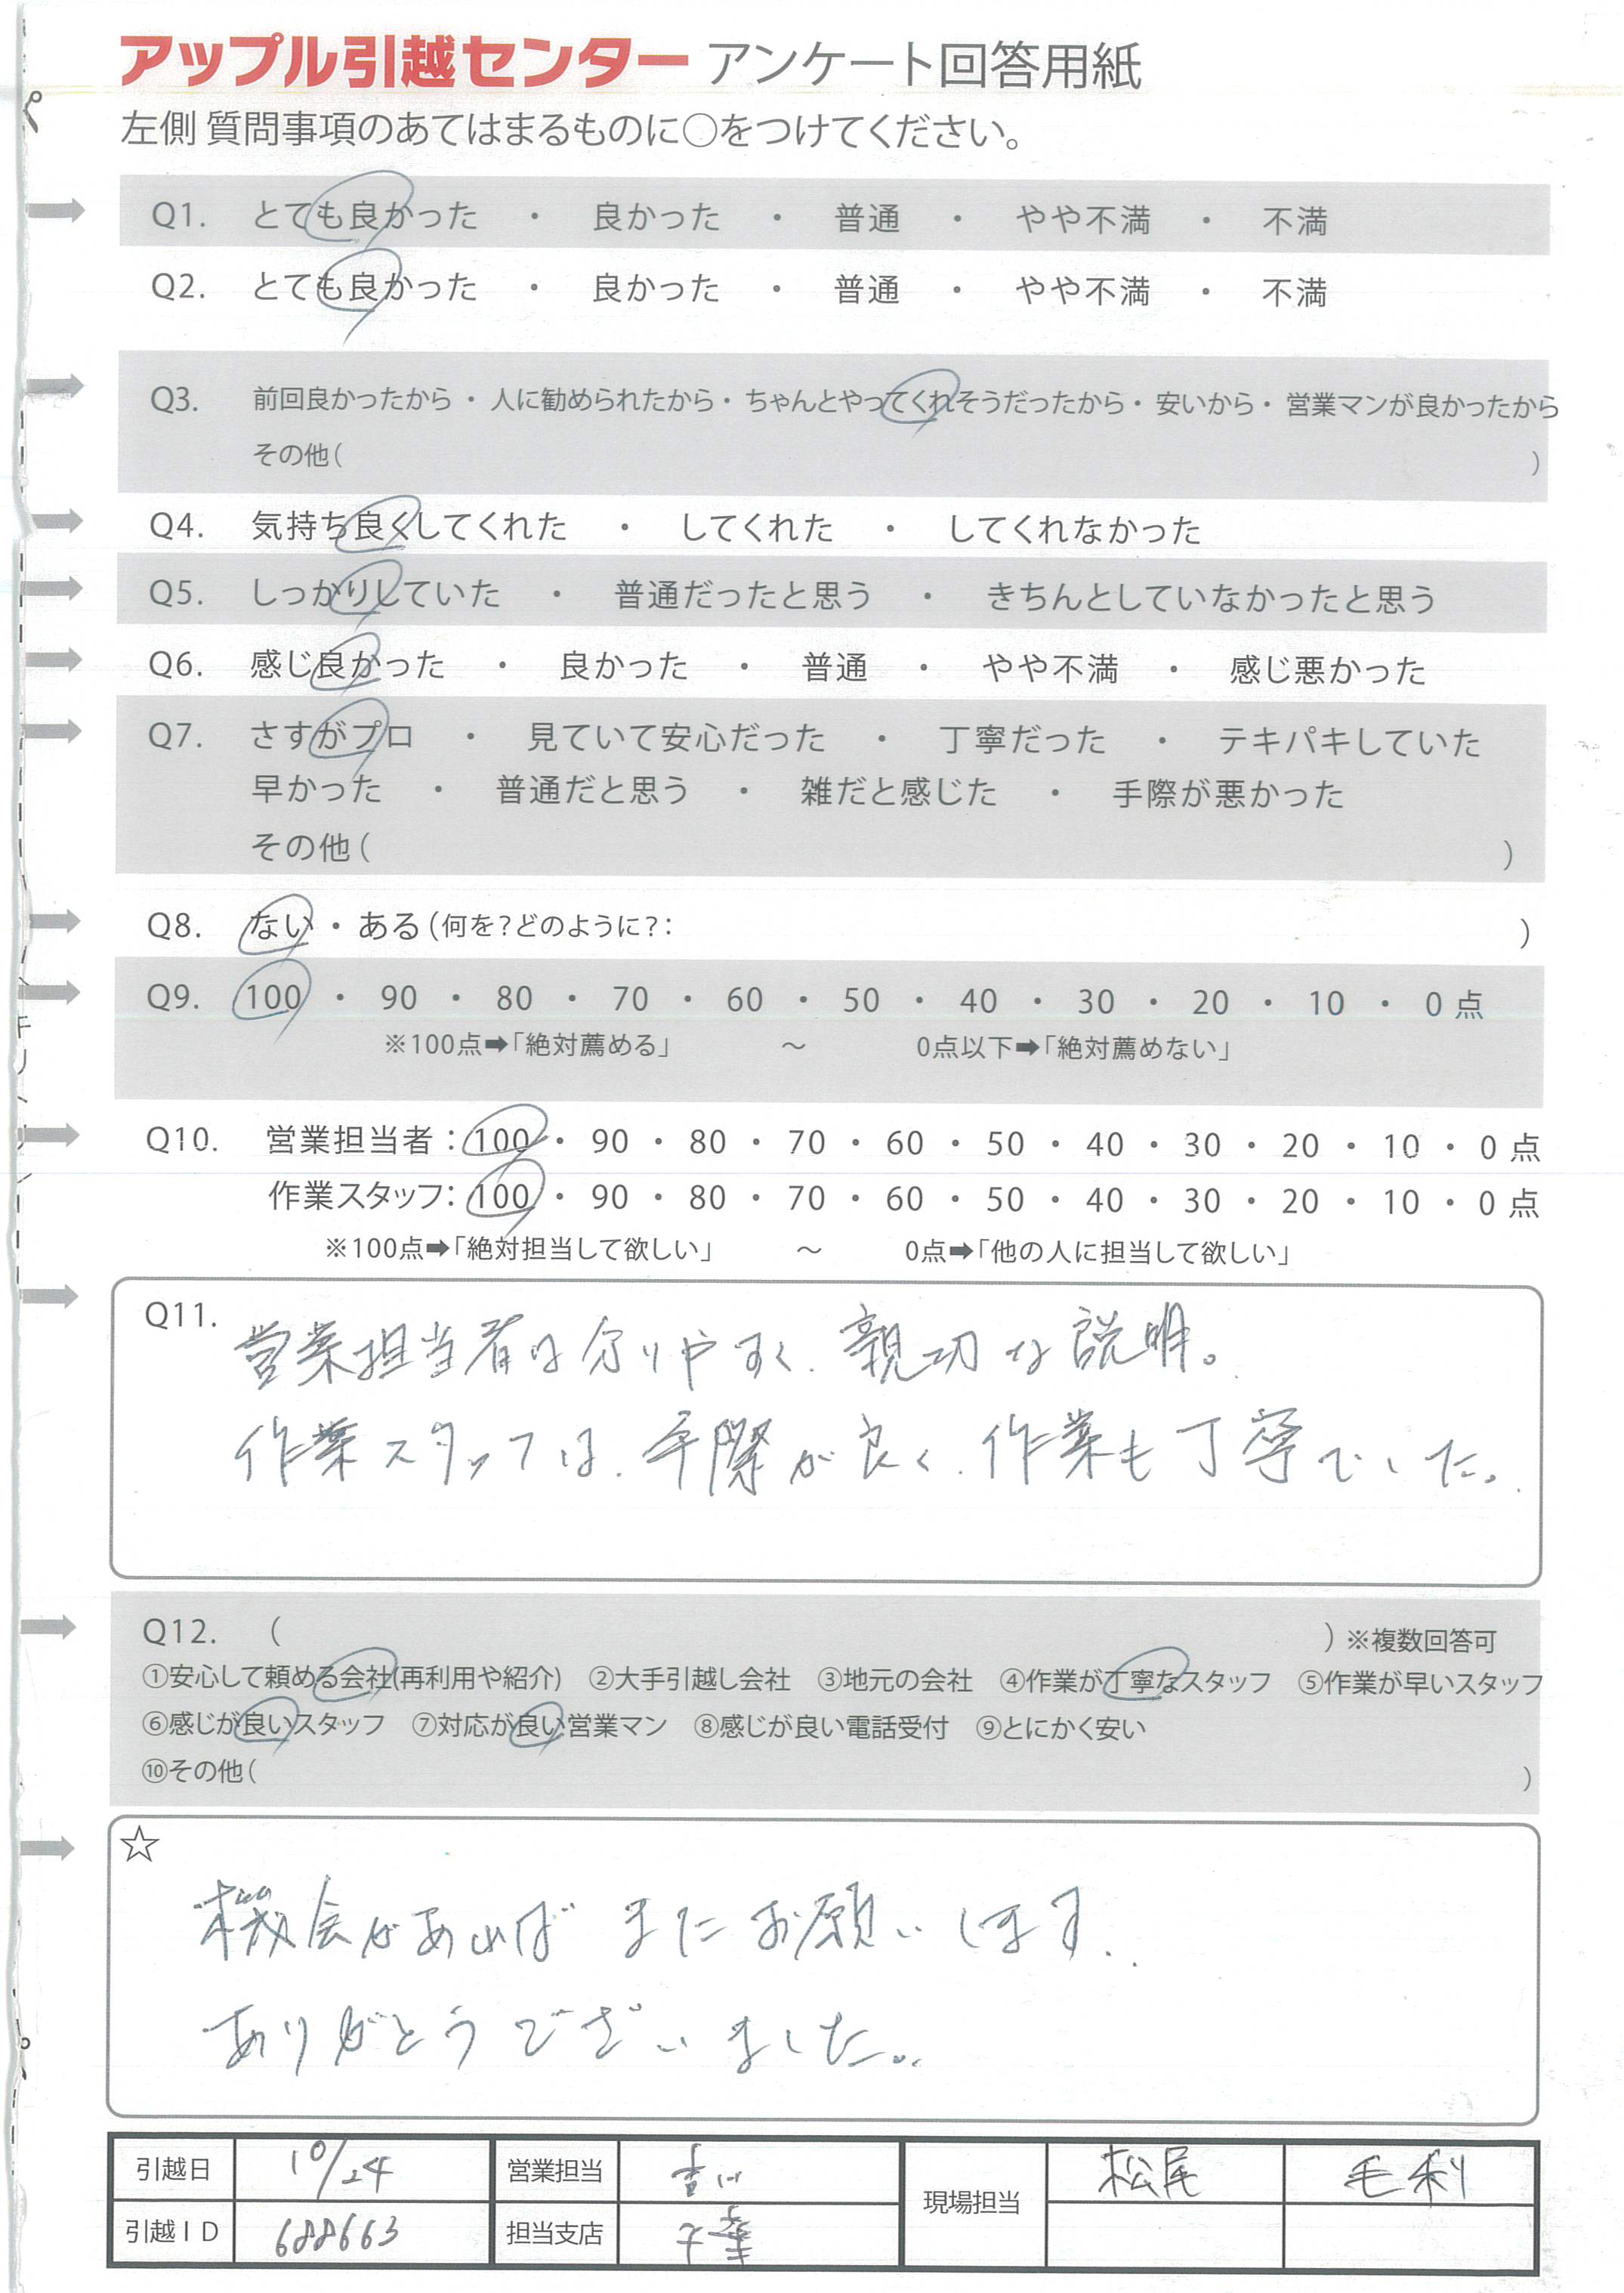 アップル引越センター アンケート回答用紙
左側 質問事項のあてはまるものに○をつけてください。
Q1. とても良かった ・ 良かった ・ 普通 ・ やや不満 ・ 不満
Q2. とても良かった ・ 良かった ・ 普通 ・ やや不満 ・ 不満
Q3. 前回良かったから・人に勧められたから・ちゃんとやってくれそうだったから・安いから・営業マンが良かったから
その他( )
Q4. 気持ち良くしてくれた ・ してくれた ・ してくれなかった
Q5. しっかりしていた ・ 普通だったと思う ・ きちんとしていなかったと思う
Q6. 感じ良かった ・ 良かった ・ 普通 ・ やや不満 ・ 感じ悪かった
Q7. さすがプロ ・ 見ていて安心だった ・ 丁寧だった ・ テキパキしていた
早かった ・ 普通だと思う ・ 雑だと感じた ・ 手際が悪かった
その他( )
Q8. ない・ある(何を?どのように?: )
Q9. 100 ・ 90 ・ 80 ・ 70 ・ 60 ・ 50 ・ 40 ・ 30 ・ 20 ・ 10 ・ 0 点
※100点➡「絶対薦める」 ～ 0点以下➡「絶対薦めない」
Q10. 営業担当者:100・ 90 ・ 80 ・ 70 ・ 60 ・ 50 ・ 40 ・ 30 ・ 20 ・ 10 ・ 0 点
作業スタッフ:100・ 90 ・ 80 ・ 70 ・ 60 ・ 50 ・ 40 ・ 30 ・ 20 ・ 10 ・ 0 点
※100点➡「絶対担当して欲しい」 ～ 0点➡「他の人に担当して欲しい」
Q11. 営業担当者は分りやすく、親切な説明。
作業スタッフは、手際が良く、作業も丁寧でした。
Q12. ( ) ※複数回答可
①安心して頼める会社(再利用や紹介) ②大手引越し会社 ③地元の会社 ④作業が丁寧なスタッフ ⑤作業が早いスタッフ
⑥感じが良いスタッフ ⑦対応が良い営業マン ⑧感じが良い電話受付 ⑨とにかく安い
⑩その他( )
☆
機会があればまたお願いします。
ありがとうございました。
引越日 10/24 営業担当 吉川 現場担当 松尾 毛利
引越ID 688663 担当支店 千葉
キリトリ